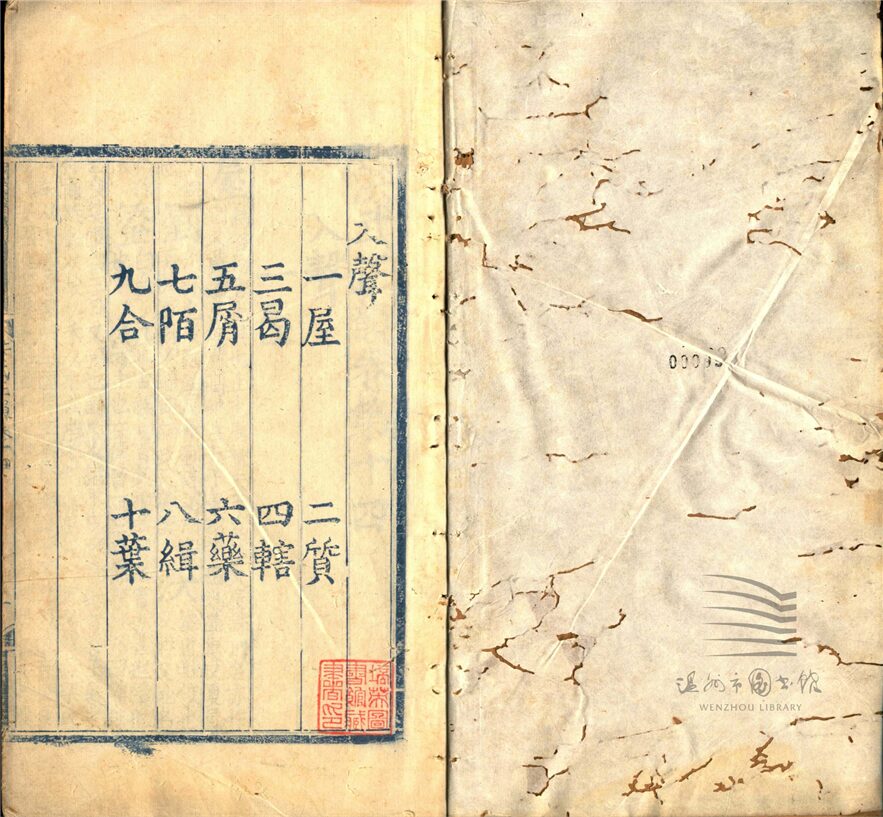 入聲
一屋 二質
三曷 四轄
五屑 六藥
七陌 八緝
九合 十葉
温州市图书馆
WENZHOU LIBRARY